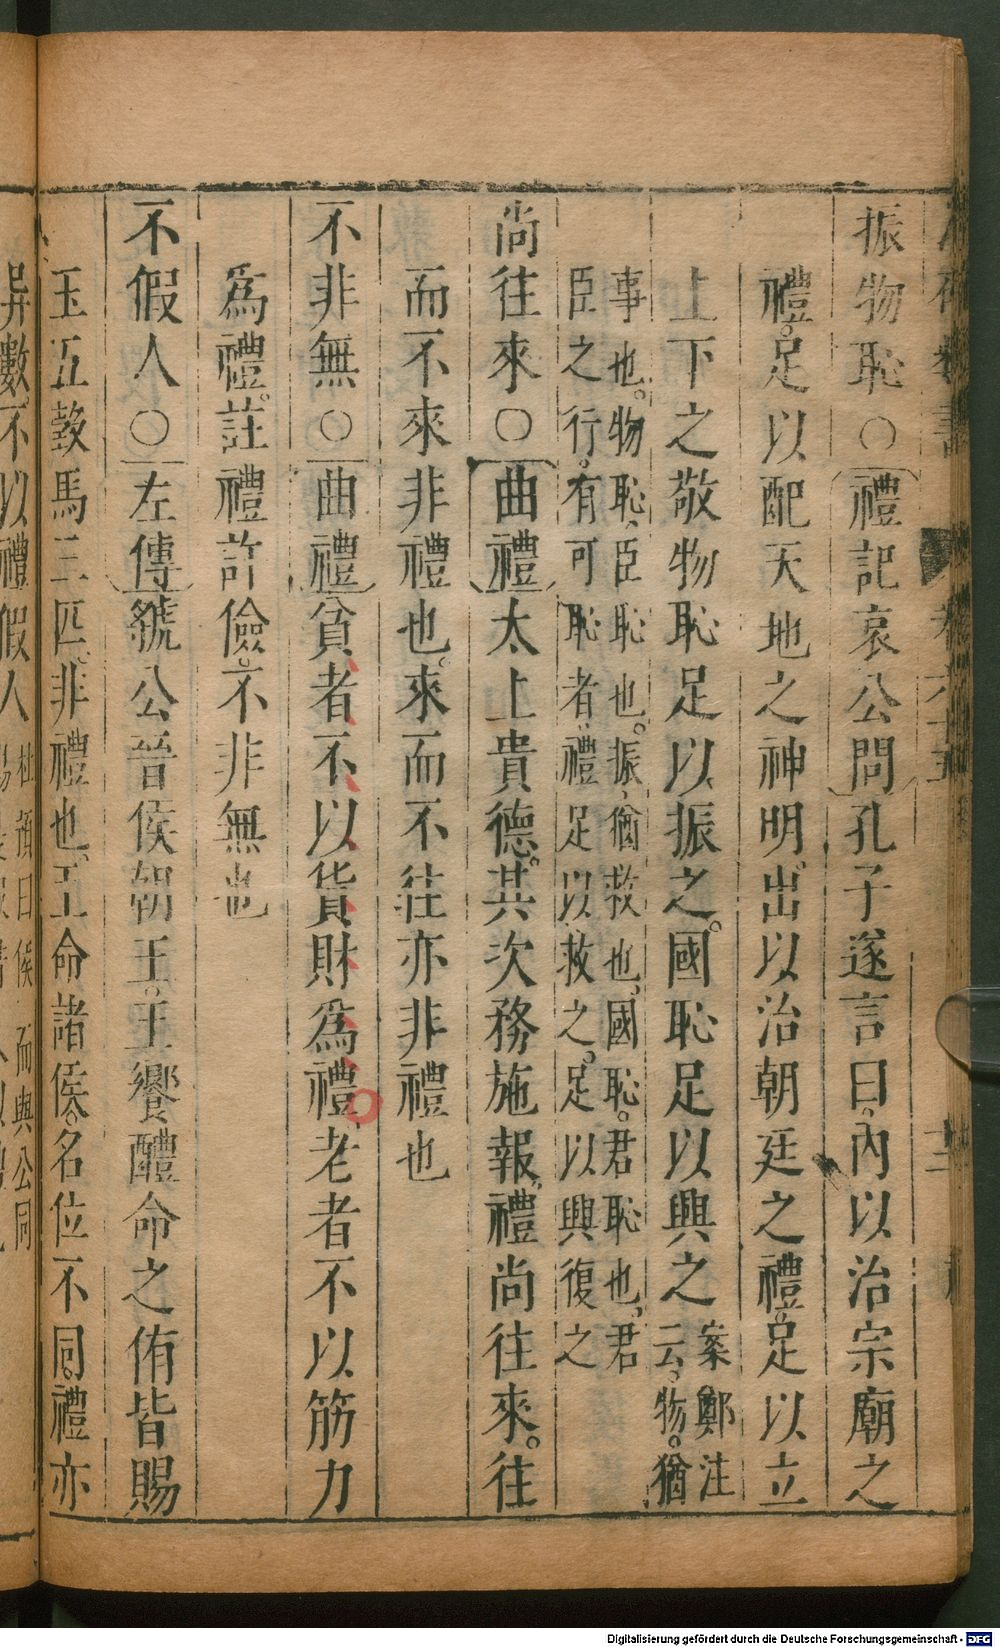 振物恥○禮記哀公問孔子遂言曰内以治宗廟之
禮足以配天地之神明出以治朝廷之禮足以立
上下之敬物恥足以振之國恥足以興之案鄭注
云物猶
事也物恥臣恥也振猶救也國恥君恥也君
臣之行有可恥者禮足以救之足以興復之
尚往來○曲禮太上貴德其次務施報禮尚往來往
而不來非禮也來而不往亦非禮也
不非無○曲禮貧者不以貨財爲禮老者不以筋力
爲禮註禮許儉不非無也
不假人○左傳虢公晉侯朝王王饗醴命之侑皆賜
玉五瑴馬三匹非禮也王命諸侯名位不同禮亦
異數不以禮假人杜預曰侯而與公同
Digitalisierung gefördert durch die Deutsche Forschungsgemeinschaft - DFG